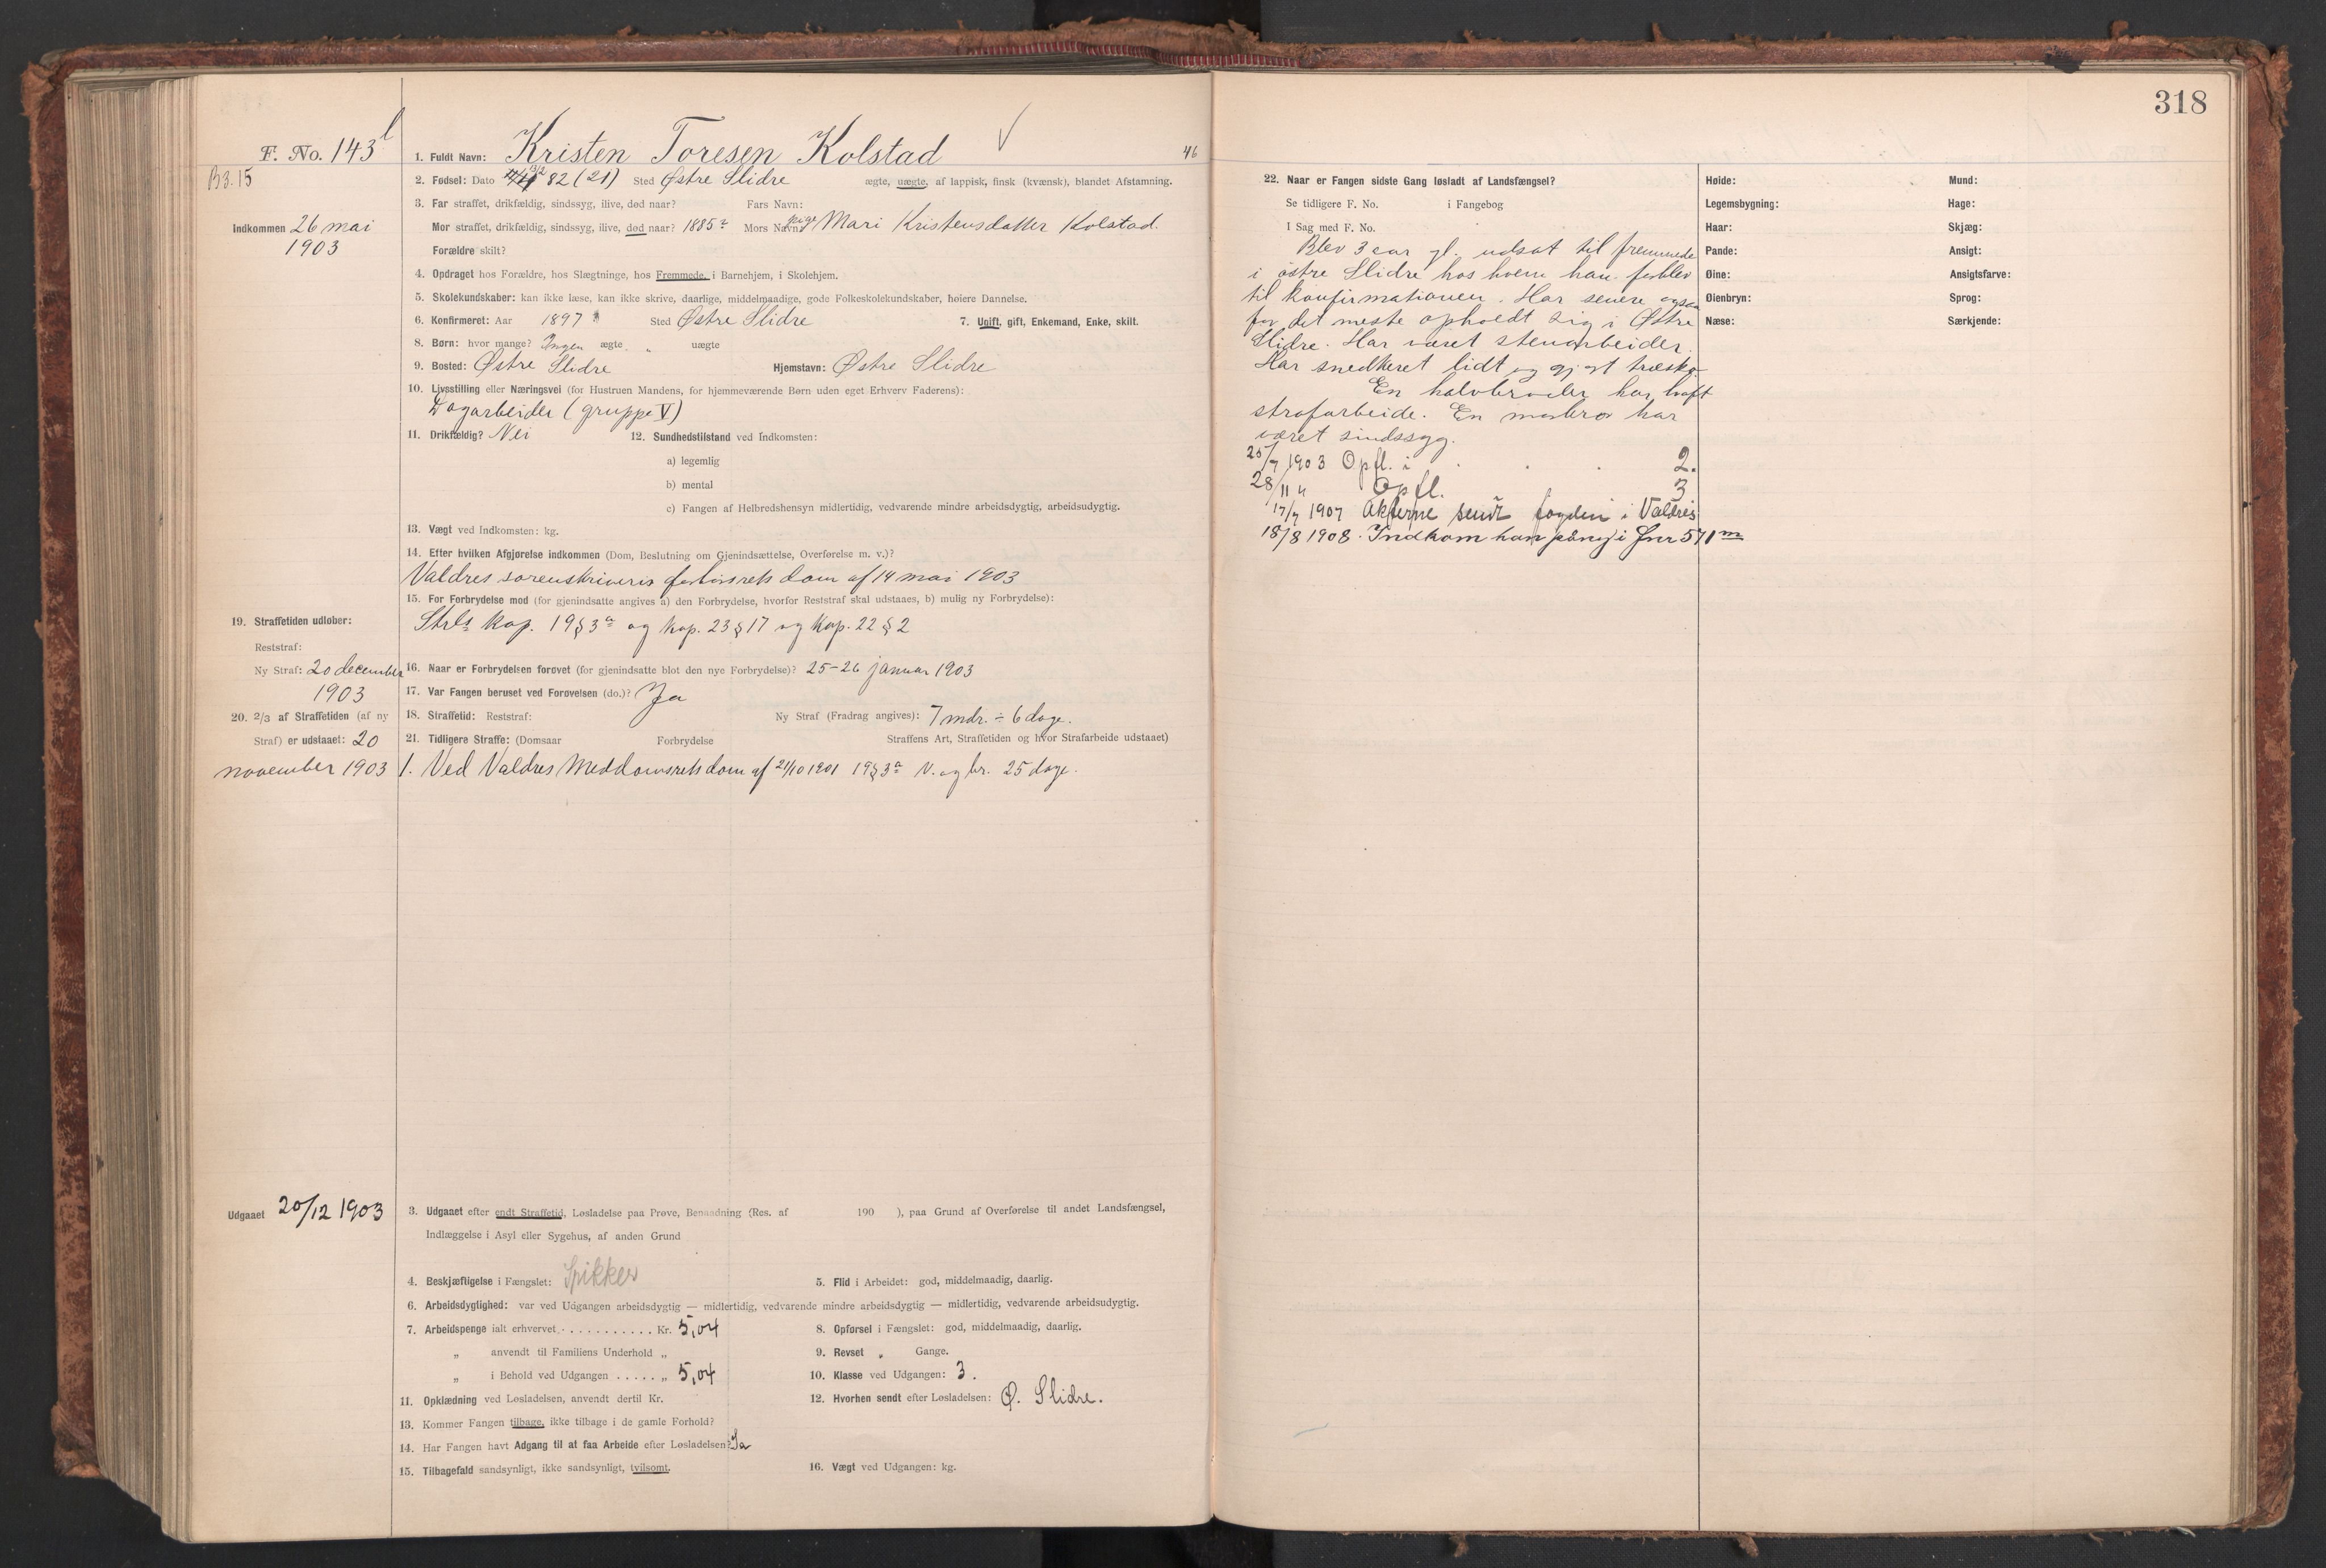 318
F. No. 143 l
B3.15
1. Fuldt Navn: Kristen Toresen Kolstad
46
2. Fødsel: Dato 13/2 82 (21) Sted Østre Slidre ægte, uægte, af lappisk, finsk (kvænsk), blandet Afstamning.
Indkommen 26 mai
1903
3. Far straffet, drikfældig, sindssyg, ilive, død naar? Fars Navn:
Mor straffet, drikfældig, sindssyg, ilive, død naar? 1885 Mors Navn: pige Mari Kristensdatter Kolstad.
Forældre skilt?
4. Opdraget hos Forældre, hos Slægtninge, hos Fremmede, i Barnehjem, i Skolehjem.
5. Skolekundskaber: kan ikke læse, kan ikke skrive, daarlige, middelmaadige, gode Folkeskolekundskaber, høiere Dannelse.
6. Konfirmeret: Aar 1897 Sted Østre Slidre 7. Ugift, gift, Enkemand, Enke, skilt.
8. Børn: hvor mange? Ingen ægte „ uægte
9. Bosted: Østre Slidre Hjemstavn: Østre Slidre
10. Livsstilling eller Næringsvei (for Hustruen Mandens, for hjemmeværende Børn uden eget Erhverv Faderens):
Dagarbeider (gruppe V)
11. Drikfældig? Nei 12. Sundhedstilstand ved Indkomsten:
a) legemlig
b) mental
c) Fangen af Helbredshensyn midlertidig, vedvarende mindre arbeidsdygtig, arbeidsudygtig.
13. Vægt ved Indkomsten: kg.
14. Efter hvilken Afgjørelse indkommen (Dom, Beslutning om Gjenindsættelse, Overførelse m. v.)?
Valdres sorenskriveris forhørsrets dom af 14 mai 1903
15. For Forbrydelse mod (for gjenindsatte angives a) den Forbrydelse, hvorfor Reststraf skal udstaaes, b) mulig ny Forbrydelse):
Strls kap. 19 § 3 a og kap. 23 § 17 og kap. 22 § 2
19. Straffetiden udløber:
Reststraf:
Ny Straf: 20 december
1903
16. Naar er Forbrydelsen forøvet (for gjenindsatte blot den nye Forbrydelse)? 25-26 januar 1903
17. Var Fangen beruset ved Forøvelsen (do.)? Ja
20. 2/3 af Straffetiden (af ny
Straf) er udstaaet: 20
november 1903
18. Straffetid: Reststraf: Ny Straf (Fradrag angives): 7 mdr. ÷ 6 dage.
21. Tidligere Straffe: (Domsaar Forbrydelse Straffens Art, Straffetiden og hvor Strafarbeide udstaaet)
1. Ved Valdres Meddomsrets dom af 21/10 1901 19 § 3 a V. og br. 25 dage.
Udgaaet 20/12 1903
3. Udgaaet efter endt Straffetid, Løsladelse paa Prøve, Benaadning (Res. af 190 ), paa Grund af Overførelse til andet Landsfængsel,
Indlæggelse i Asyl eller Sygehus, af anden Grund
4. Beskjæftigelse i Fængslet: Spikker 5. Flid i Arbeidet: god, middelmaadig, daarlig.
6. Arbeidsdygtighed: var ved Udgangen arbeidsdygtig — midlertidig, vedvarende mindre arbeidsdygtig — midlertidig, vedvarende arbeidsudygtig.
7. Arbeidspenge ialt erhvervet . . . . . . . . . . . Kr. 5,04 8. Opførsel i Fængslet: god, middelmaadig, daarlig.
„ anvendt til Familiens Underhold „ 9. Revset „ Gange.
„ i Behold ved Udgangen . . . . . „ 5,04 10. Klasse ved Udgangen: 3.
11. Opklædning ved Løsladelsen, anvendt dertil Kr. 12. Hvorhen sendt efter Løsladelsen: Ø. Slidre.
13. Kommer Fangen tilbage, ikke tilbage i de gamle Forhold?
14. Har Fangen havt Adgang til at faa Arbeide efter Løsladelsen? Ja
15. Tilbagefald sandsynligt, ikke sandsynligt, tvilsomt. 16. Vægt ved Udgangen: kg.
22. Naar er Fangen sidste Gang løsladt af Landsfængsel?
Se tidligere F. No. i Fangebog
I Sag med F. No.
Blev 3 aar gl. udsat til fremmede
i østre Slidre hos hvem han forblev
til konfirmationen. Har senere ogsaa
for det meste opholdt sig i Østre
Slidre. Har været stenarbeider.
Har snedkeret lidt og gjort træsko.
En halvbroder har havt
strafarbeide. En morbror har
været sindssyg.
25/7 1903 Opfl. i . . . 2.
28/11 „ Opfl. 3
17/7 1907 Akterne sendt fogden i Valdres
18/8 1908. Indkom han påny i Fnr 571 m
Høide: Mund:
Legemsbygning: Hage:
Haar: Skjæg:
Pande: Ansigt:
Øine: Ansigtsfarve:
Øienbryn: Sprog:
Næse: Særkjende: